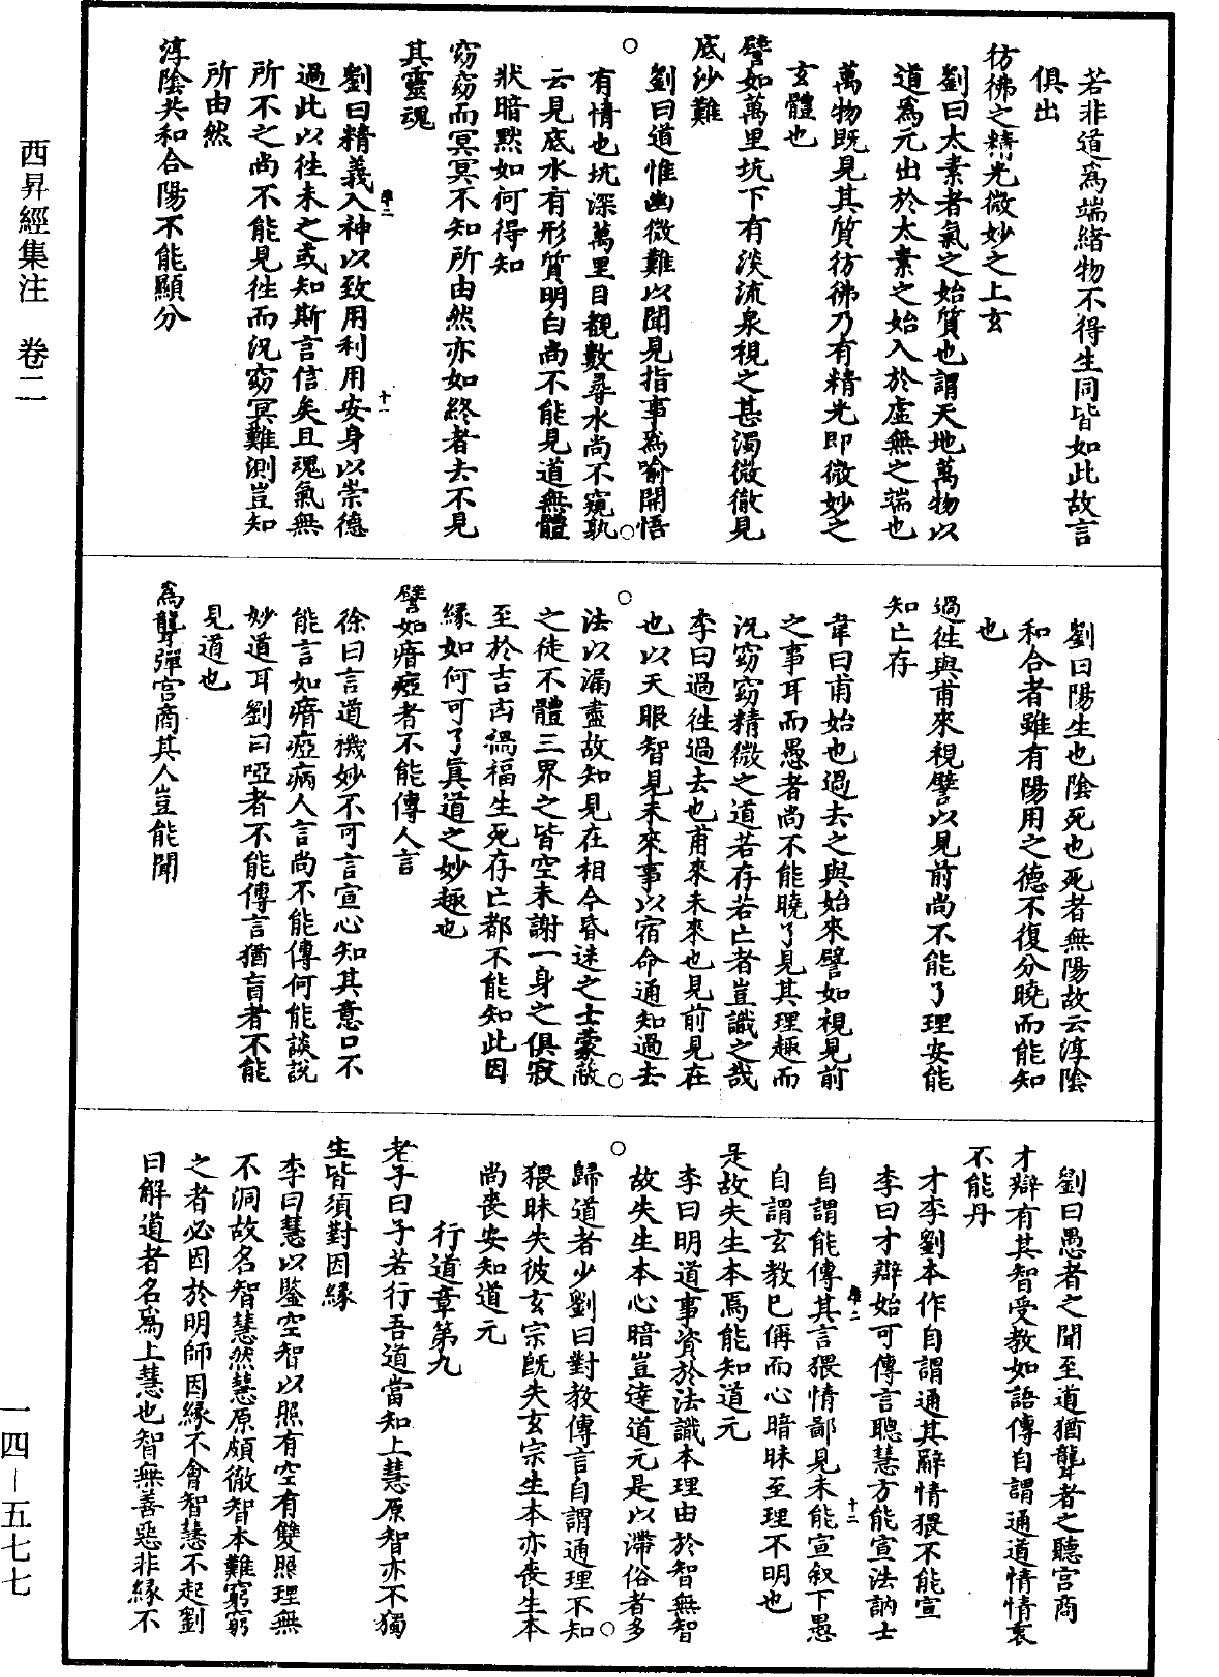 若非道爲端緒物不得生同皆如此故言
俱出
彷彿之精光微妙之上玄
劉曰太素者氣之始質也謂天地萬物以
道爲元出於太素之始入於虛無之端也
萬物既見其質彷彿乃有精光即微妙之
玄體也
譬如萬里坑下有淡流泉視之甚濁微徹見
底沙難
劉曰道惟幽微難以聞見指事爲喻開悟
有情也坑深萬里目覩數尋水尚不窺孰
云見底水有形質明白尚不能見道無體
狀暗黙如何得知
窈窈而冥冥不知所由然亦如終者去不見
其靈魂
劉曰精義入神以致用利用安身以崇德
過此以徃未之或知斯言信矣且魂氣無
所不之尚不能見徃而況窈冥難測豈知
所由然
淳陰共和合陽不能顯分
劉曰陽生也陰死也死者無陽故云淳陰
和合者雖有陽用之德不復分曉而能知
也
過徃與甫來視譬以見前尚不能了理安能
知亡存
韋曰甫始也過去之與始來譬如視見前
之事耳而愚者尚不能曉了見其理趣而
況窈窈精微之道若存若亡者豈識之哉
李曰過徃過去也甫來未來也見前見在
也以天眼智見未來事以宿命通知過去
法以漏盡故知見在相今昏迷之士蒙敵
之徒不體三界之皆空未謝一身之俱寂
至於吉凶禍福生死存亡都不能知此因
緣如何可了眞道之妙趣也
譬如瘖瘂者不能傳人言
徐曰言道機妙不可言宣心知其意口不
能言如瘖瘂病人言尚不能傳何能談說
妙道耳劉曰啞者不能傳言猶盲者不能
見道也
爲聾彈宮商其人豈能聞
劉曰愚者之聞至道猶聾者之聽宮商
才辯有其智受教如語傳自謂通道情情哀
不能丹
才李劉本作自謂通其辭情猥不能宣
李曰才辯始可傳言聰慧方能宣法訥士
自謂能傳其言猥情鄙見未能宣叙下愚
自謂玄教已俻而心暗昧至理不明也
是故失生本焉能知道元
李曰明道事資於法識本理由於智無智
故失生本心暗豈達道元是以滯俗者多
歸道者少劉曰對教傳言自謂通理不知
猥昧失彼玄宗旣失玄宗生本亦喪生本
尚喪安知道元
行道章第九
老子曰子若行吾道當知上慧原智亦不獨
生皆須對因緣
李曰慧以鑒空智以照有空有雙照理無
不洞故名智慧然慧原頗徹智本難窮窮
之者必因於明師因緣不會智慧不起劉
曰解道者名爲上慧也智無善惡非緣不
西昇經集注　卷二
一四－五七七
十一
十二